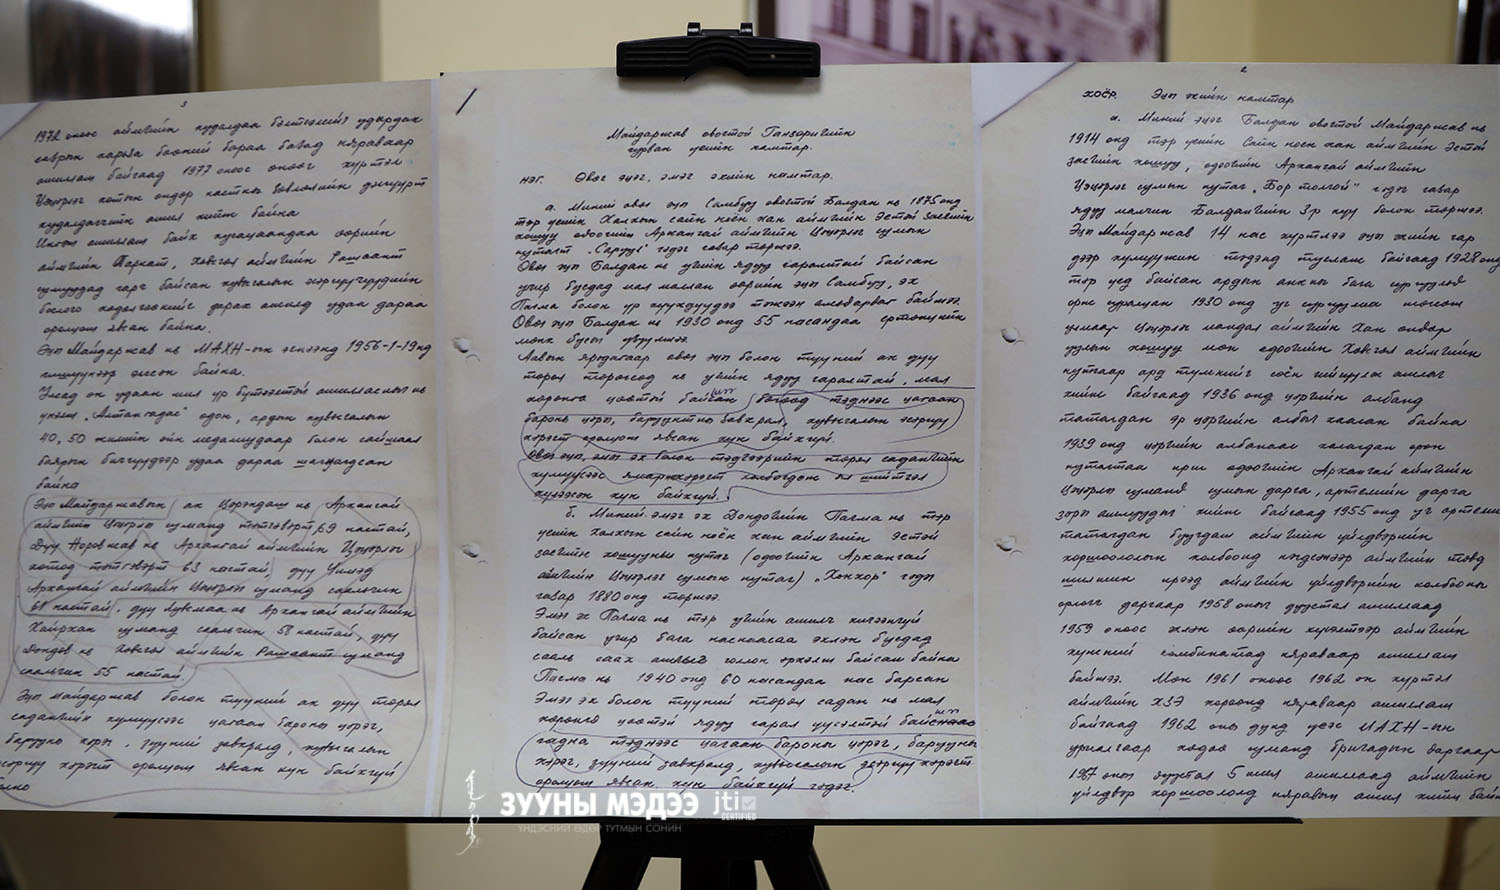 3
1972 оноос аймгийн худалдаа бэлтгэлийн удирдах
газрын харьяа бөөний бараа баазад няраваар
ажиллаж байгаад 1977 оноос өнөөг хүртэл
Цэцэрлэг хотын ондор настны зөвлөлийн дэлгүүрт
худалдагчийн ажил хийж байна
Ингэж ажиллаж байх хугацаандаа өөрийн
аймгийн Тариат, Хөвсгөл аймгийн Рашаант
сумуудад гарч байсан хувьсгалын эсэргүүчүүдийн
бослого хөдөлгөөнийг дарах ажилд удаа дараа
оролцож явсан байна.
Эцэг Майдаржав нь МАХН-ын эгнээнд 1956-1-19нд
гишүүнээр элссэн байна.
Улсад он удаан жил үр бүтээлтэй ажилласныг нь
үнэлж "Алтангадас" одон, ардын хувьсгалын
40, 50 жилийн ойн медалиудаар болон сайшаал
баярын бичгүүдээр удаа дараа шагнагдсан
байна
Эцэг Майдаржавын ах Цэрэндаш нь Архангай
аймгийн Цэцэрлэг суманд тэтгэвэрт, 69 настай,
дүү Норовжав нь Архангай аймгийн Цэцэрлэг
хотод тэтгэвэрт 63 настай, дүү Чимэд
Архангай аймгийн Цэцэрлэг суманд саальчин
61 настай, дүү Лувсмаа нь Архангай аймгийн
Хайрхан суманд саальчин 58 настай, дүү
Дондов нь Хөвсгөл аймгийн Рашаант суманд
саальчин 55 настай.
Эцэг Майдаржав болон түүний ах дүү төрөл
садангийн хүмүүсээс цагаан бароны цэрэг,
барууны хэрэг, зүүний завхрал, хувьсгалын
эсэргүү хэрэгт оролцож явсан хүн байхгүй
Майдаржав овогтой Ганзоригийн
гурван үеийн намтар.
НЭГ. Өвөг эцэг, эмэг эхийн намтар.
а. Миний өвөг эцэг Самбуу овогтой Балдан нь 1875онд
тэр үеийн Халхын сайн ноён хан аймгийн Эстэй засгийн
хошуу одоогийн Архангай аймгийн Цэцэрлэг сумын
нутагт "Саруул" гэдэг газар төржээ.
Өвөг эцэг Балдан нь үеийн ядуу гаралтай байсан
учир бусдад мал маллан өөрийн эцэг Самбуу, эх
Пагма болон үр хүүхдүүдээ тэжээн амьдардаг байжээ.
Өвөг эцэг Балдан нь 1930 онд 55 насандаа ертөнцийн
мөнх бусыг үзүүлжээ.
Аавын ярьдагаар өвөг эцэг болон түүний ах дүү
төрөл төрөгсөд нь үеийн ядуу гаралтай, мал
хөрөнгө цөөтэй байсан бөгөөд тэднээс цагаан
бароны цэрэг, барууныг завхрал, хувьсгалын эсэргүү
хэрэгт оролцож явсан хүн байхгүй.
Өвөг эцэг, эмэг эх болон тэдгээрийн төрөл садангийн
хүмүүсээс ямар нэг хэрэгт холбогдож ял шийтгэл
хүлээсэн хүн байхгүй.
б. Миний эмэг эх Дондогийн Пагма нь тэр
үеийн Халхын сайн ноён хан аймгийн Эстэй
засгийн хошууны нутаг (одоогийн Архангай
аймгийн Цэцэрлэг сумын нутаг) "Хонхор" гэдэг
газар 1880 онд төржээ.
Эмэг эх Пагма нь тэр үеийн ажилч хичээнгүй
байсан учир бага наснаасаа эхлэн бусдад
сааль саах ажлыг голлон эрхэлж байсан байна
Пагма нь 1940 онд 60 насандаа нас барсан
Эмэг эх болон түүний төрөл садан нь мал
хөрөнгө цөөтэй ядуу гарал үүсэлтэй байснаас
гадна тэднээс цагаан бароны цэрэг, барууны
хэрэг, зүүний завхрал, хувьсгалын эсэргүү хэрэгт
оролцож явсан хүн байхгүй гэдэг.
2
ХОЁР. Эцэг эхийн намтар
а. Миний эцэг Балдан овогтой Майдаржав нь
1914 онд тэр үеийн Сайн ноён хан аймгийн Эстэй
засгийн хошуу, одоогийн Архангай аймгийн
Цэцэрлэг сумын нутаг "Бор толгой" гэдэг газар
ядуу малчин Балдангийн 3-р хүү болон төржээ.
Эцэг Майдаржав 14 нас хүртлээ эцэг эхийн гар
дээр хүмүүжин тэдэнд тусалж байгаад 1928 онд
тэр үед байсан ардын анхны бага сургуульд
орж суралцан 1930 онд уг сургуулиа төгсөж
улмаар Цэцэрлэг мандал аймгийн Хан ондор
уулын хошуу мөн одоогийн Хөвсгөл аймгийн
нутгаар ард түмнийг соён гийгүүлэх ажлыг
хийж байгаад 1936 онд цэргийн албанд
татагдан эр цэргийн албыг хаасан байна
1939 онд цэргийн албанаас халагдан орон
нутагтаа ирж одоогийн Архангай аймгийн
Цэцэрлэг суманд сумын дарга, артелийн дарга
зэрэг ажлуудыг хийж байгаад 1955 онд уг артелиа
татагдан буугдаж аймгийн үйлдвэрийн
хоршоололын холбоонд нэгдсэнээр аймгийн төвд
шилжин ирээд аймгийн үйлдвэрийн холбооны
орлогч даргаар 1958 оныг дуустал ажиллаад
1959 оноос эхлэн өөрийн хүсэлтээр аймгийн
хүнсний комбинатад няраваар ажиллаж
байжээ. Мөн 1961 оноос 1962 он хүртэл
аймгийн ХЗЭ хороонд няраваар ажиллаж
байгаад 1962 оны дунд үеэс МАХН-ын
уриалгаар хөдөө суманд бригадын даргаар
1967 оныг дуустал 5 жил ажиллаад аймгийн
үйлдвэр хоршоололд няравын ажил хийж
ЗУУНЫ МЭДЭЭ
ҮНДЭСНИЙ ӨДӨР ТУТМЫН СОНИН
jti
CERTIFIED